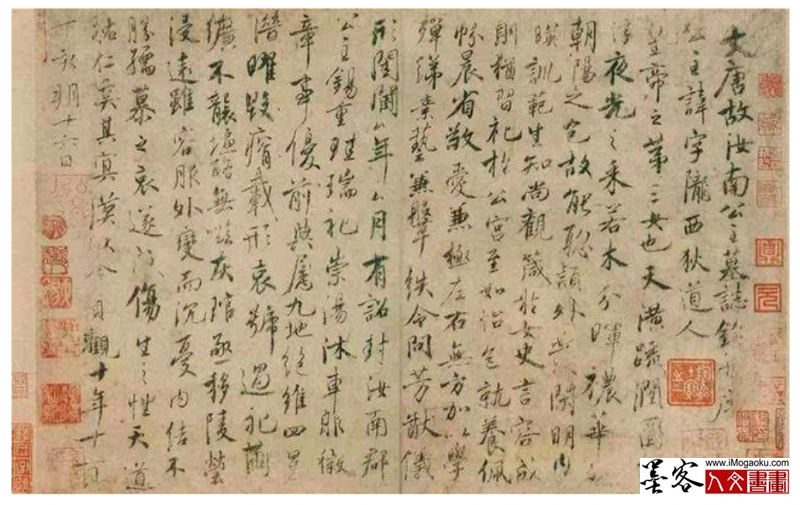 大唐故汝南公主墓誌銘并序
公主諱字隴西狄道人
皇帝之第三女也天潢疏潤圓
浮夜光之采若木分暉穠華照
朝陽之色故能聰穎外發閑明內
暎訓範生知尚觀箴於女史言容成
則猶習礼於公宮至如怡色就養佩
帉晨省敬愛兼極左右無方加以學
殫綈素藝兼鞶紩令問芳猷儀
形閨閫厶年厶月有詔封汝南郡
公主錫重珪瑞礼崇湯沐車服徽
章事優前典屬九地絕維四星
潛曜毀瘠載形哀號過礼繭
纊不襲塩酪無嗞灰琯亟移陵塋
浸遠雖容服外變而沉憂內結不
勝孺慕之哀遂成傷生之性天道
祐仁奚其冥漠以今貞觀十年十一月
丁亥朔十六日
www.iMogaoku.com
墨客人文書畫